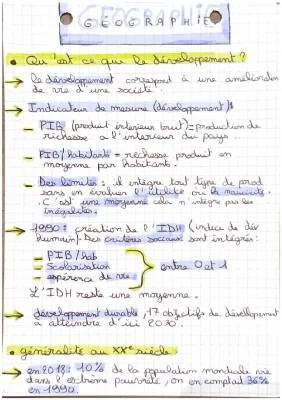 GEOGRAPHIE
• Qu'est ce que le développement ?
→ le développement correspond à une amélioration
de vie d'une société.
→ Indicateur de mesure (développement)
- PIB (produit intérieur brut) = production de
richesse a l'intérieur du pays.
- PIB/habitants = richesse produit en
moyenne par habitants.
- Des limites : il intègre tout type de prod
sans en évaluer l'utilité ou la nuisance.
. C'est une moyenne cela n'intègre pas les
inégalités.
→ 1990 : création de l'IDH (indice de dév
humain). Des critères sociaux sont intégrés :
- PIB/hab
- Scolarisation
- espérance de vie
entre 0 et 1
L'IDH reste une moyenne.
→ développement durable, 17 objectifs de développement
a atteindre d'ici 2030.
• généralité au XXe siècle
→ en 2018 : 10% de la population mondiale vie
dans l'extrême pauvreté, on en comptait 36%
en 1990.